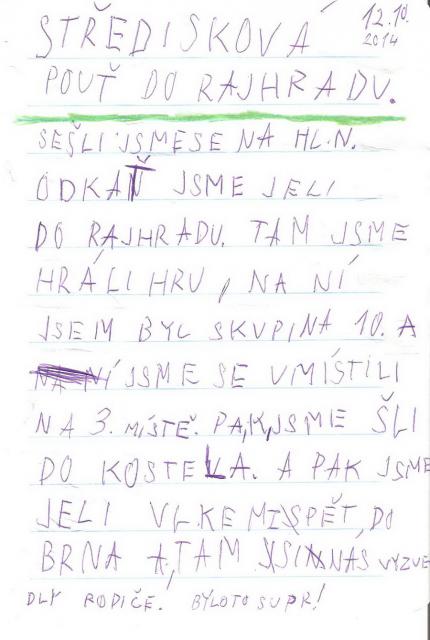 STŘEDISKOVÁ 12.10.
2014
POUŤ DO RAJHRADU.
SEŠLI JSMESE NA HL.N.
ODKAŇ JSME JELI
DO RAJHRADU. TAM JSME
HRÁLI HRU, NA NÍ
JSEM BYL SKUPINA 10. A
JSME SE VMÍSTILI
NA 3. MÍSTĚ. PAK JSME ŠLI
DO KOSTELA. A PAK JSME
JELI VLKEM ZPĚT, DO
BRNA A, TAM SI NÁS VYZVE
DLY RODIČE. BYLOTO SUPR!